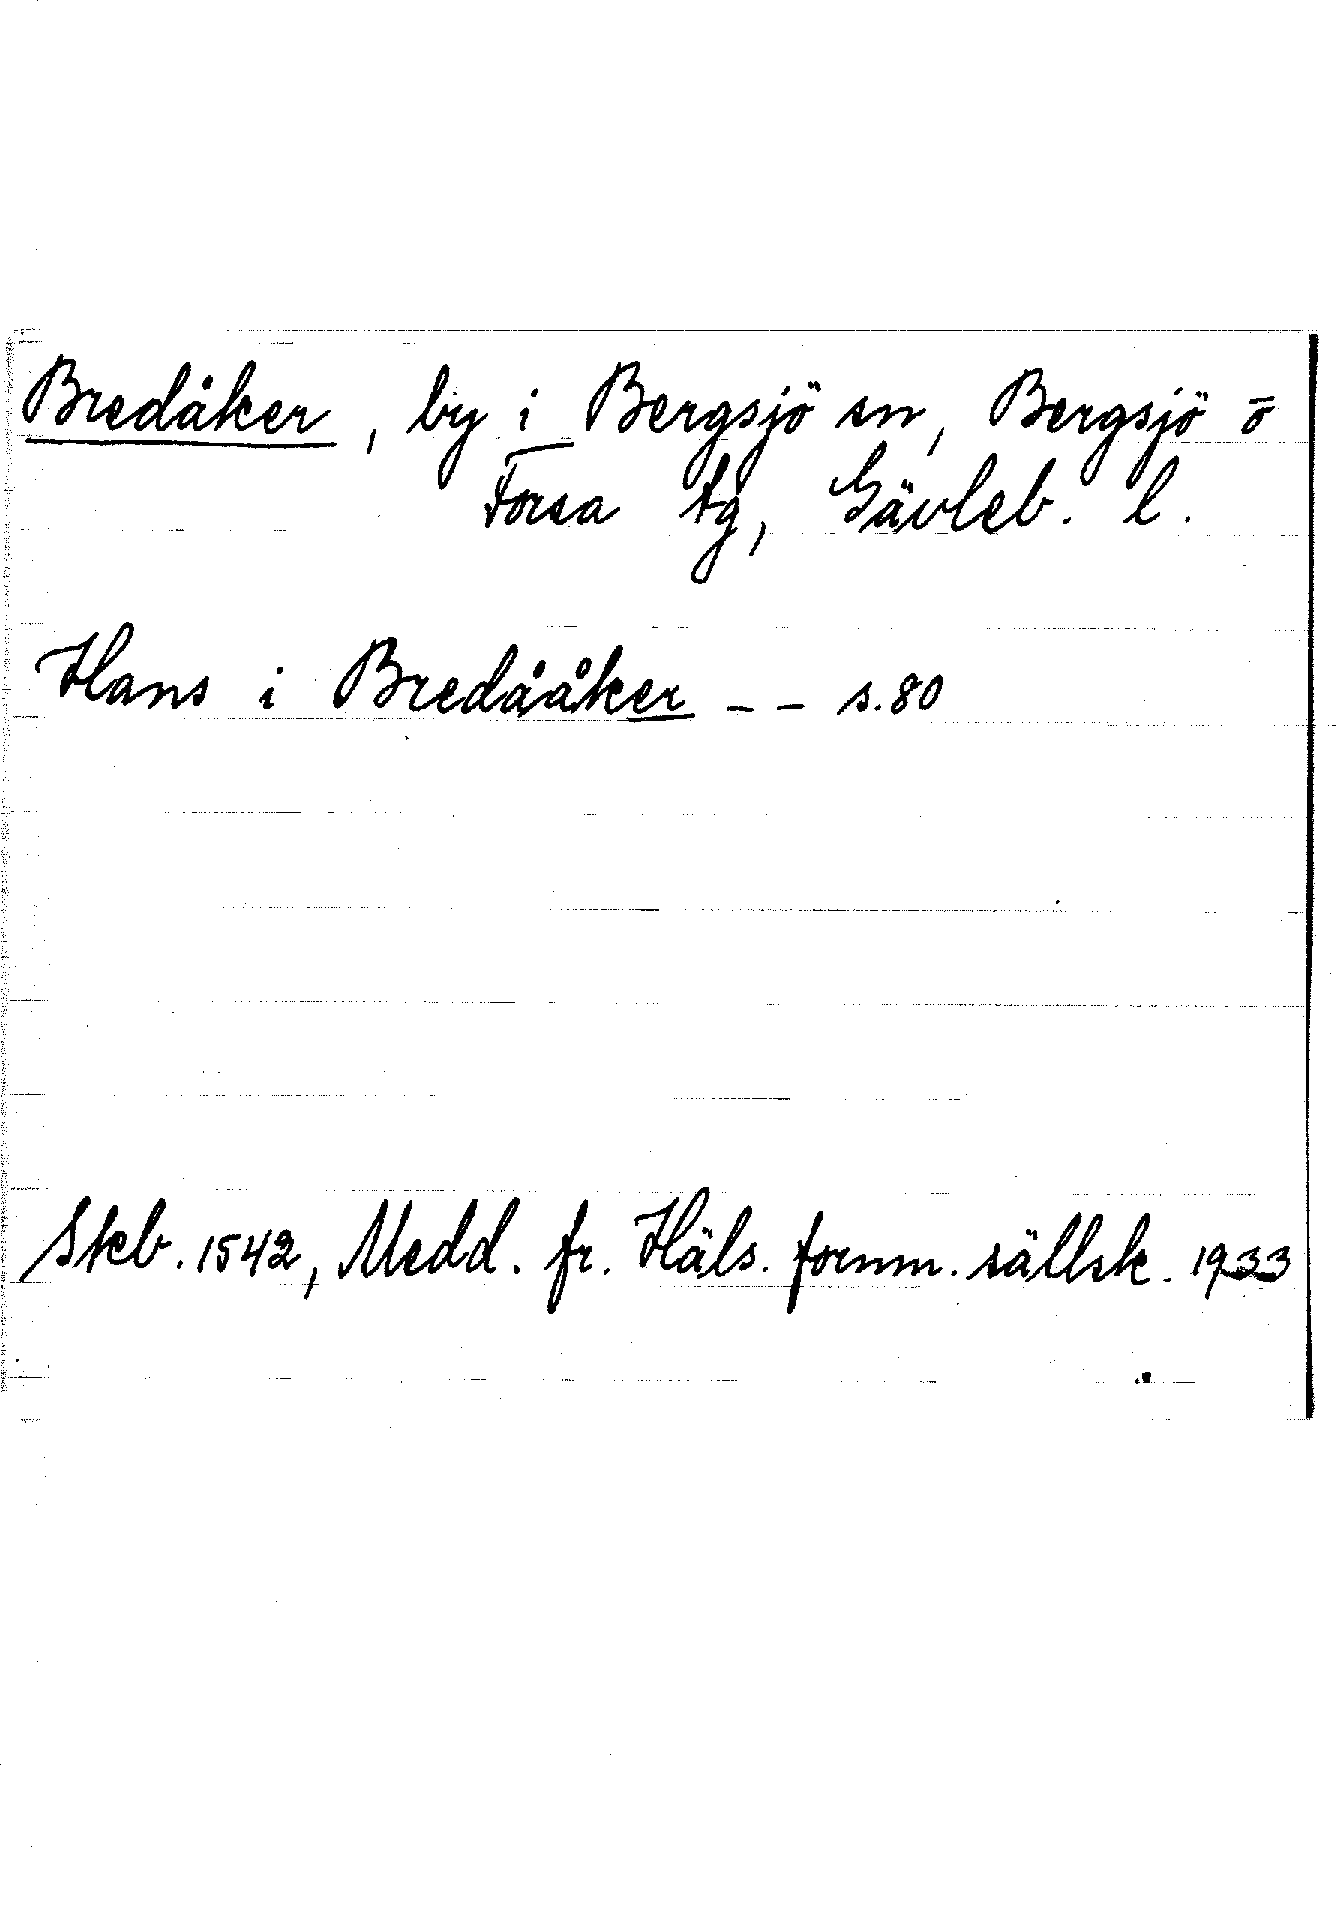 Bredåker, by i Bergsjö sn, Bergsjö o
Forsa tg, Gävleb. l.
Hans i Bredååker - - s. 80
Skb. 1542, Medd. fr. Häls. fornm. sällsk. 1933